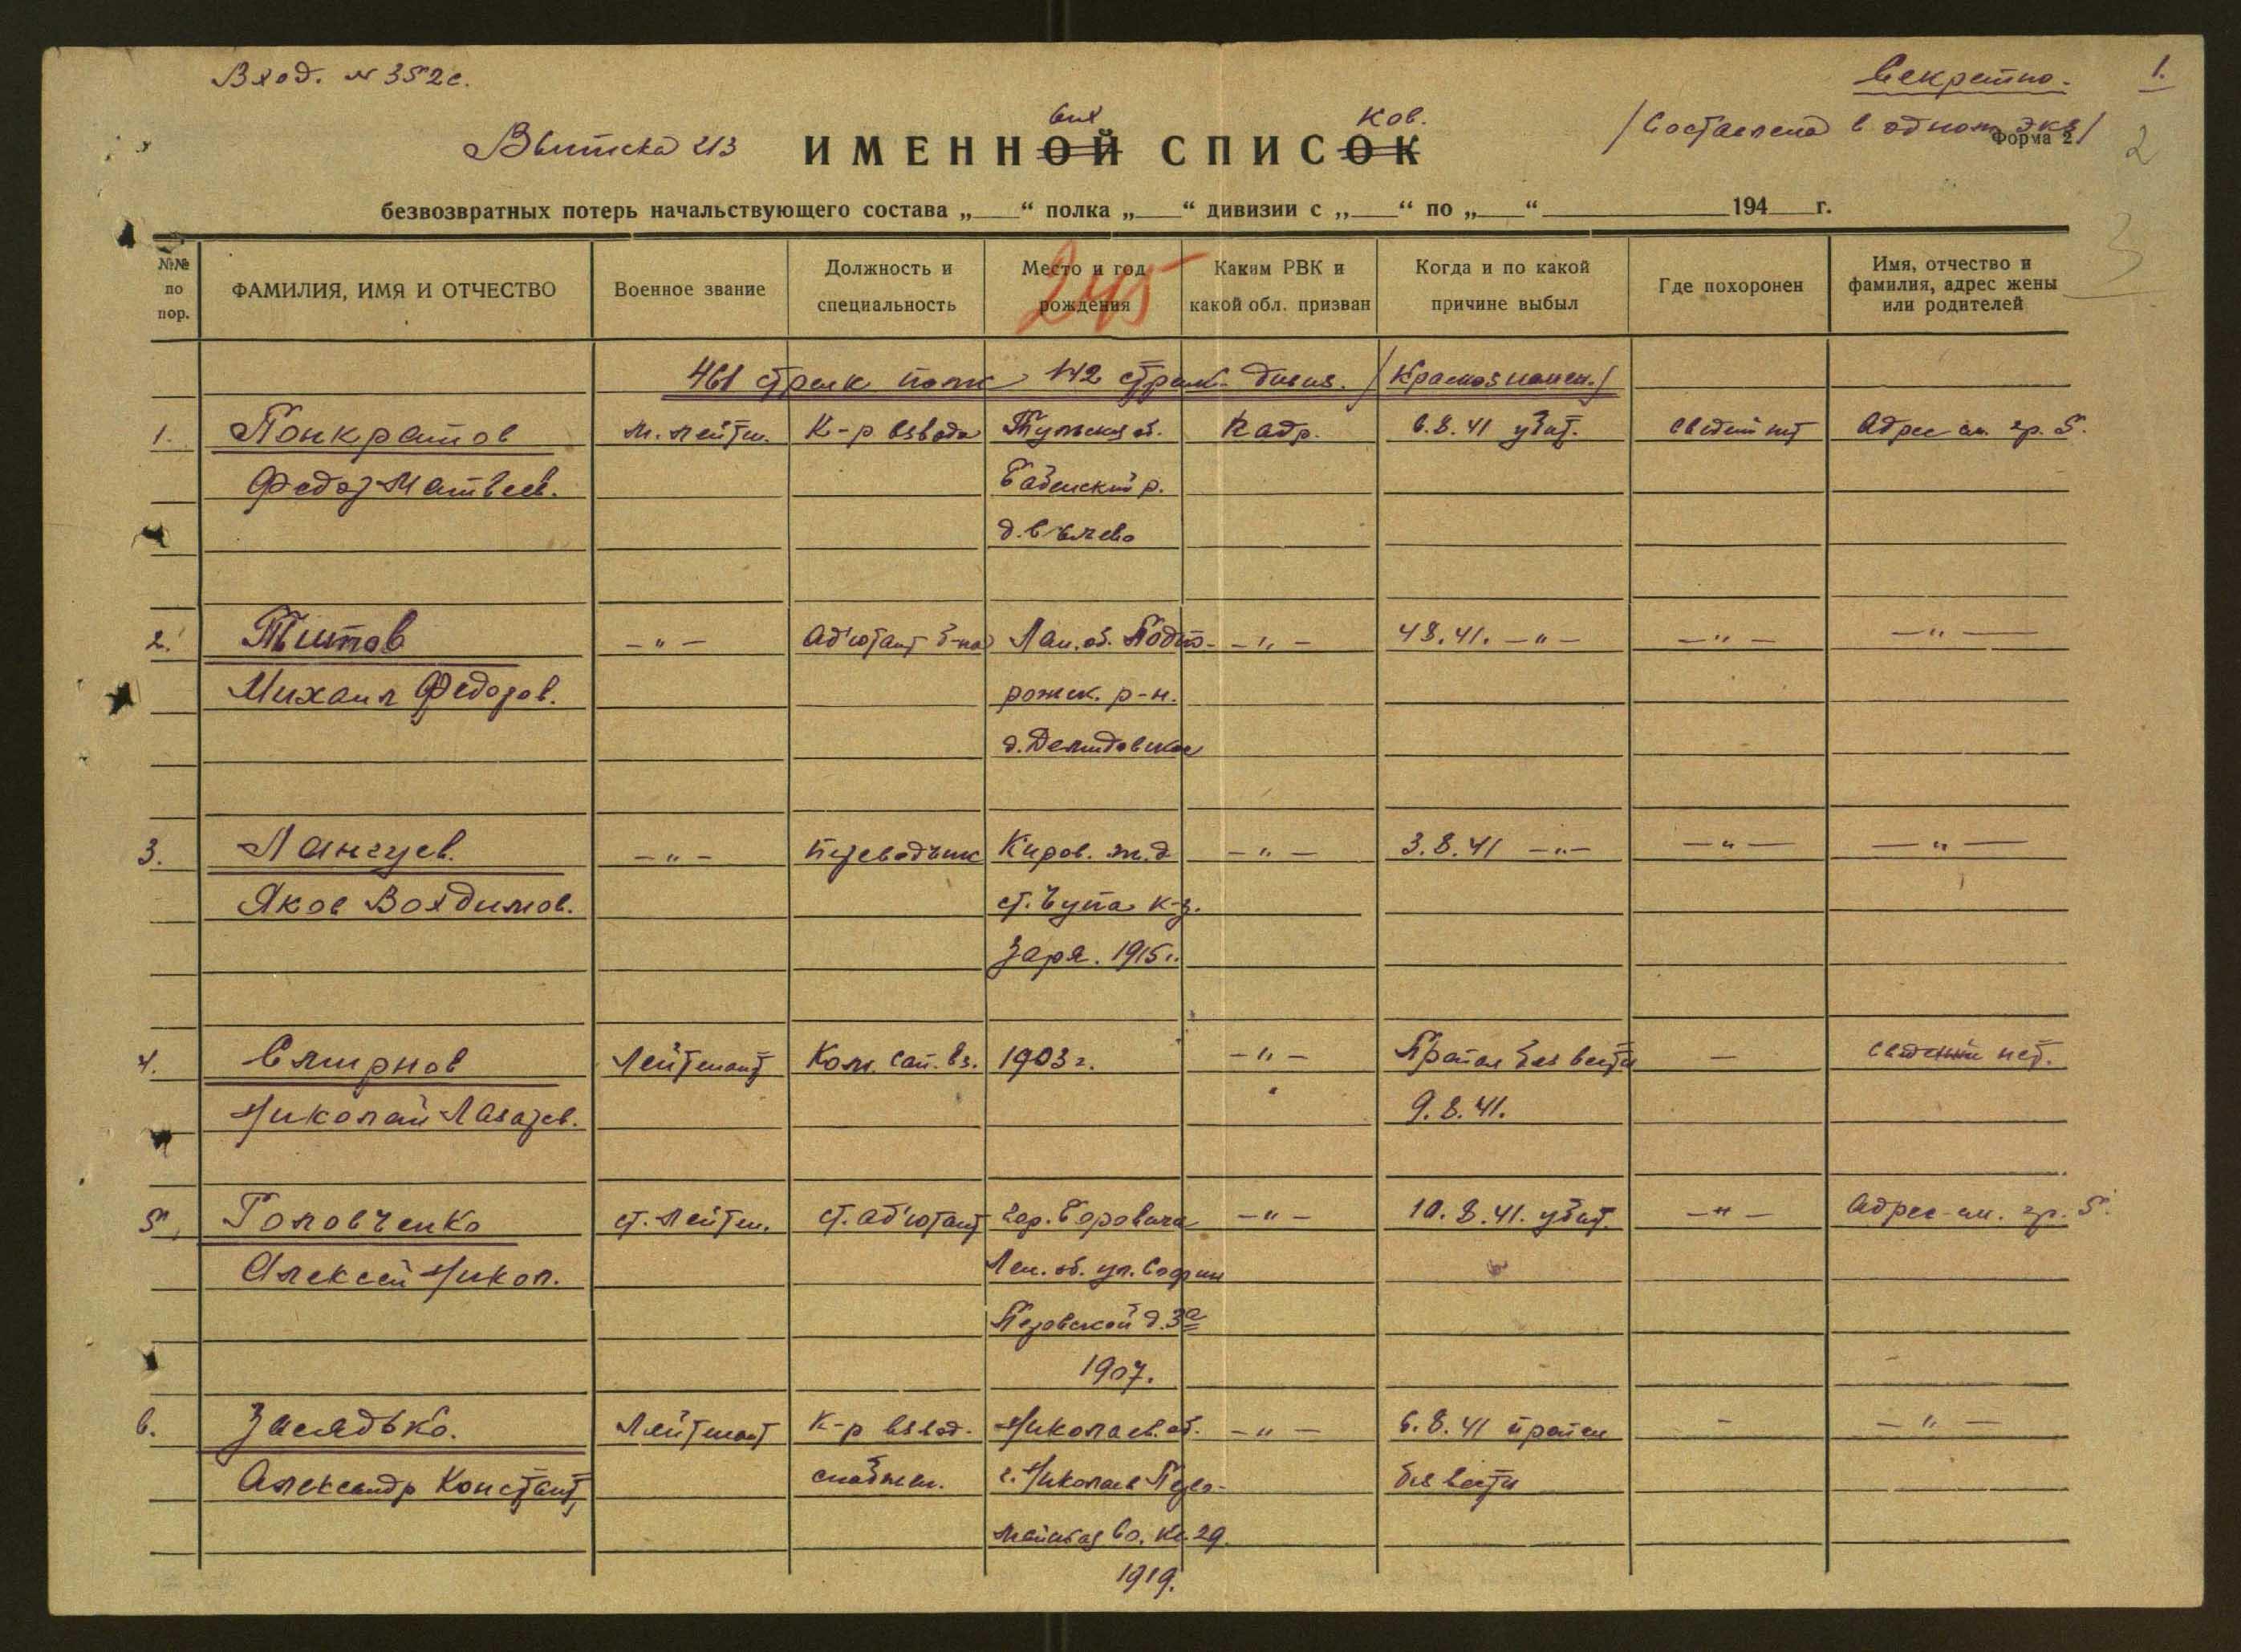 Вход. № 352с.
Секретно.
1.
Выписка из ИМЕННОЙ ных СПИСОК ков.
/Составлена в одном экз/
Форма 2.
2
безвозвратных потерь начальствующего состава „___“ полка „___“ дивизии с „___“ по „___“ ______ 194__г.
3
№№ по пор.
ФАМИЛИЯ, ИМЯ И ОТЧЕСТВО
Военное звание
Должность и специальность
Место и год рождения
Каким РВК и какой обл. призван
Когда и по какой причине выбыл
Где похоронен
Имя, отчество и фамилия, адрес жены или родителей
245
461 стрелк полк 142 стрелк. дивиз. /Краснознамен./
1. Понкратов м. лейтен. К-р взвода Тульская об. Кадр. 6.8.41 убит. сведен нет Адрес см. гр. 5.
Федот Матвеев. р.
д.
2. Титов – „ – Ад'ютант б-на Лен. об. Подпо- – „ – 4 8. 41. – „ – – „ – – „ –
Михаил Федоров. рожск. р-н.
д. Демидовское
3. Лангуев. – „ – переводчик Киров. ж. д – „ – 3. 8. 41 – „ – – „ – – „ –
Яков ст. Чупа к-з.
Заря. 1915г.
4. Смирнов Лейтенант Ком. сап. вз. 1903 г. – „ – Пропал без вести – сведений нет.
Николай Лазарев. 9. 8. 41.
5. Головченко ст. лейтен. ст. ад'ютант гор. Боровичи – „ – 10. 8. 41. убит. – „ – Адрес см. гр. 5.
Алексей Никол. Лен. об. ул. Софии
Перовской д. 3а
1907.
6. Засядько. Лейтенант К-р взвод. Николаев. об. – „ – 6. 8. 41 пропал – – „ –
Александр Констант. снабжен. г. Николаев без вести
29.
1919.